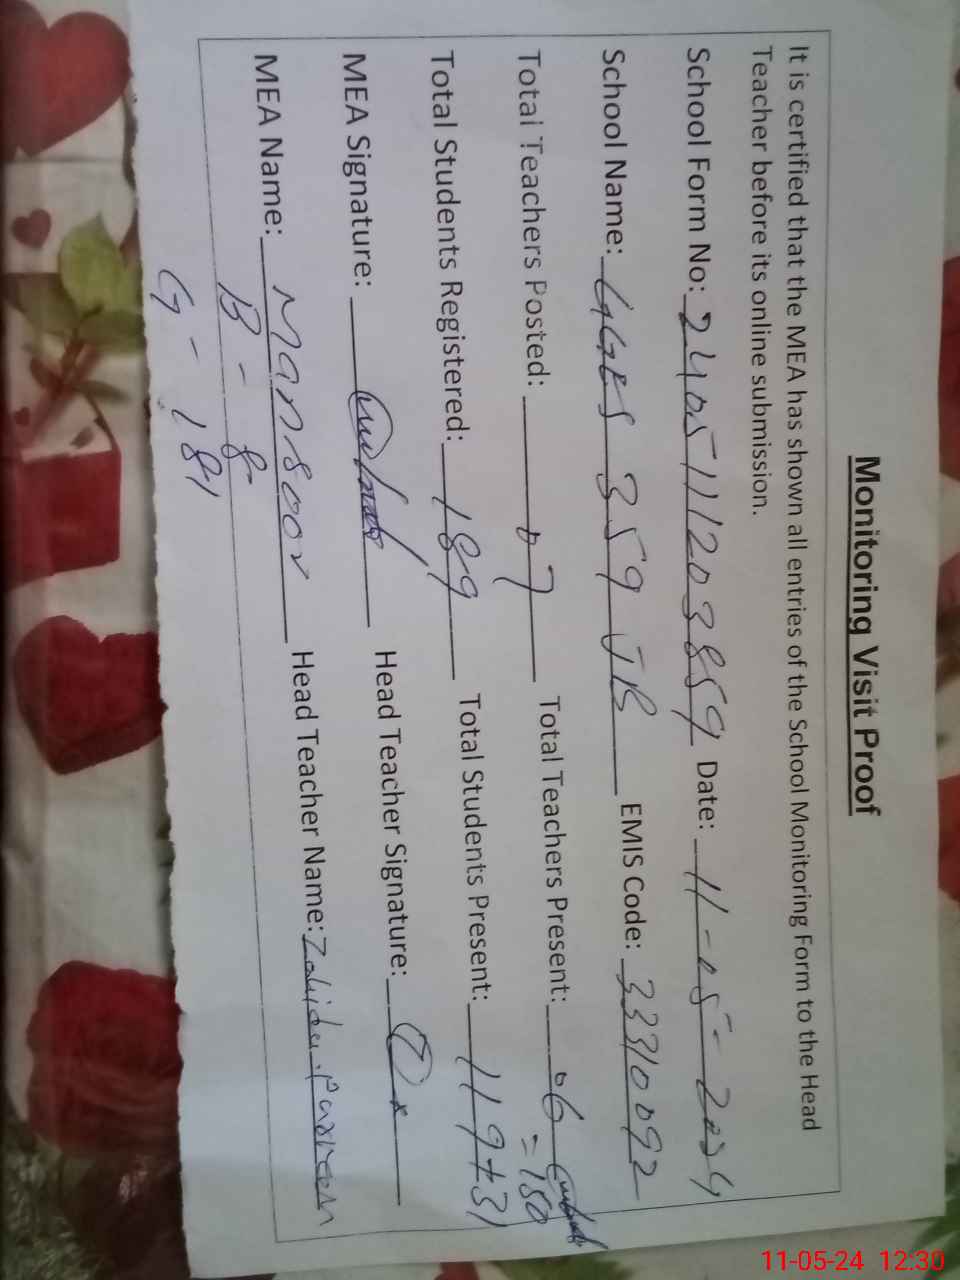 Monitoring Visit Proof
It is certified that the MEA has shown all entries of the School Monitoring Form to the Head
Teacher before its online submission.
School Form No: 240511203859 Date: 11-05-2024
School Name: GGES 359 JB EMIS Code: 33310092
Total Teachers Posted: 07 Total Teachers Present: 06
= 150
Total Students Registered: 189 Total Students Present: 119+31
MEA Signature: Head Teacher Signature:
MEA Name: Mansoor Head Teacher Name: Zahida Parveen
B - 8
G - 181
11-05-24 12:30